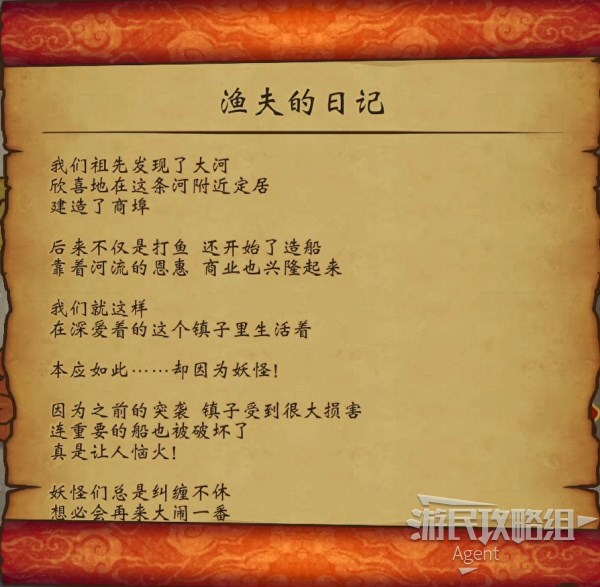 渔夫的日记
我们祖先发现了大河
欣喜地在这条河附近定居
建造了商埠
后来不仅是打鱼 还开始了造船
靠着河流的恩惠 商业也兴隆起来
我们就这样
在深爱着的这个镇子里生活着
本应如此……却因为妖怪!
因为之前的突袭 镇子受到很大损害
连重要的船也被破坏了
真是让人恼火!
妖怪们总是纠缠不休
想必会再来大闹一番
游民攻略组
Agent